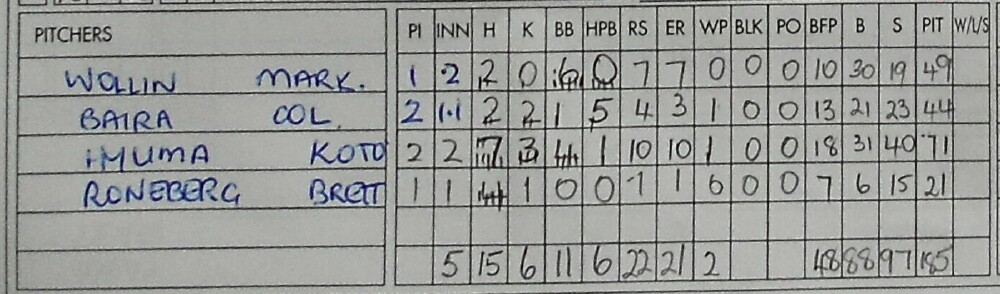 PITCHERS PI INN H K BB HPB RS ER WP BLK PO BFP B S PIT W/L/S
WOLLIN MARK. 1 .2 2 0 6 0 7 7 0 0 0 10 30 19 49
BAIRA COL. 2 1.1 2 2 1 5 4 3 1 0 0 13 21 23 44
IMUMA KOTO 2 2 7 3 4 1 10 10 1 0 0 18 31 40 71
RONEBERG BRETT 1 1 4 1 0 0 1 1 0 0 0 7 6 15 21
5 15 6 11 6 22 21 2 48 88 97 185